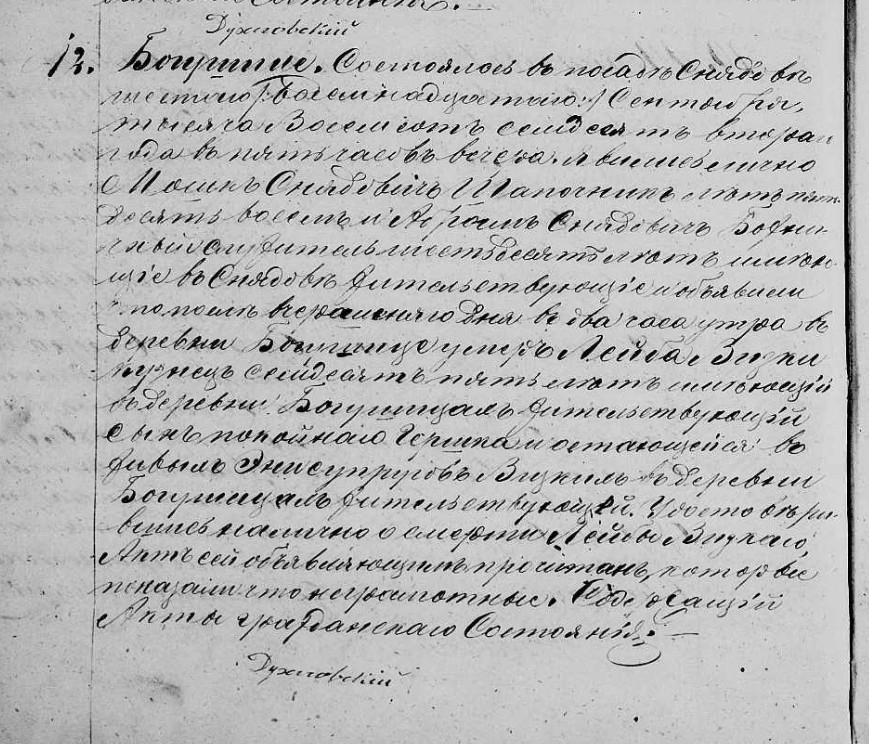 Духновский
12. Богушице. Состоялось въ посадѣ Снядовѣ
шестаго /:восемнадцатаго:/ Сентября,
тысяча Восемьсотъ семдесятъ втораго
года въ пять часовъ вечера. Явились лично
Мошкъ Снядовичъ Шапочникъ лѣтъ пять-
десятъ восемь и Абрамъ Снядовичъ Божни-
чный служитель шестьдесятъ лѣтъ имѣю-
щіе въ Снядовѣ жительствующіе и объявили
что вчерашняго дня въ два часа утра въ
деревни Богушице умеръ Лейба Визки
кузнецъ семдесятъ пять лѣтъ имѣющій
въ деревни Богушицахъ жительствующій
сынъ покойнаго Гершка и остающейся въ
живыхъ супруговъ Визкихъ въ деревни
Богушицахъ жительствующей. Удостовѣри-
вшись налично о смерти Лейбы Визкаго
Актъ сей объявляющимъ прочитанъ, которые
показали что неграмотные. Содержащій
Акты гражданскаго Состоянія.
Духновский